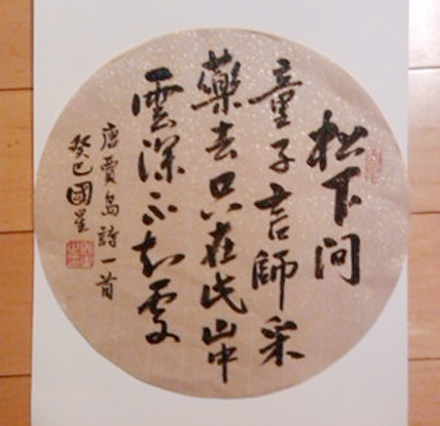 松下问
童子言師采
藥去只在此山中
雲深不知處
唐賈島詩一首
癸巳國星